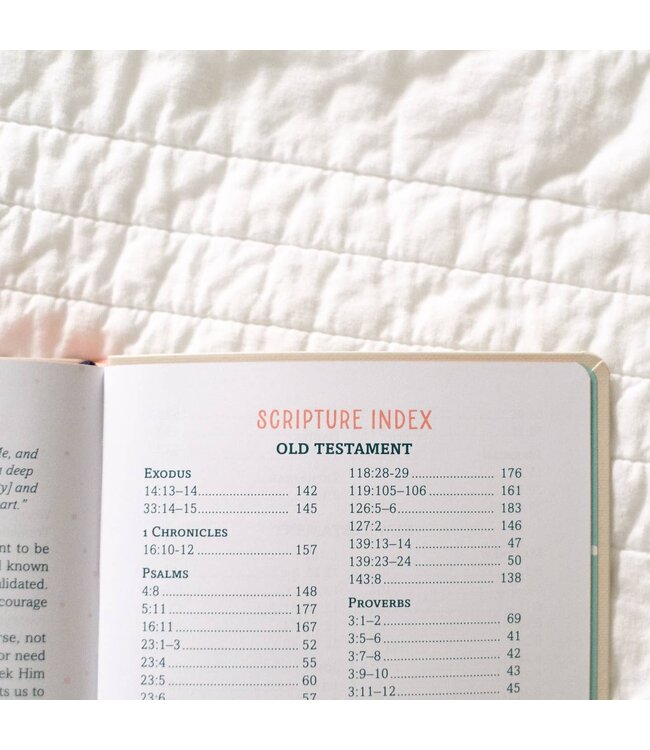 Me, and
a deep
y] and
art."
nt to be
l known
alidated.
courage
rse, not
or need
ek Him
ts us to
SCRIPTURE INDEX
OLD TESTAMENT
EXODUS
14:13–14 142
33:14–15 145
1 CHRONICLES
16:10-12 157
PSALMS
4:8 148
5:11 177
16:11 167
23:1–3 52
23:4 55
23:5 60
23:6 57
118:28-29 176
119:105–106 161
126:5–6 183
127:2 146
139:13–14 47
139:23–24 50
143:8 138
PROVERBS
3:1–2 69
3:5–6 41
3:7–8 42
3:9–10 43
3:11–12 45